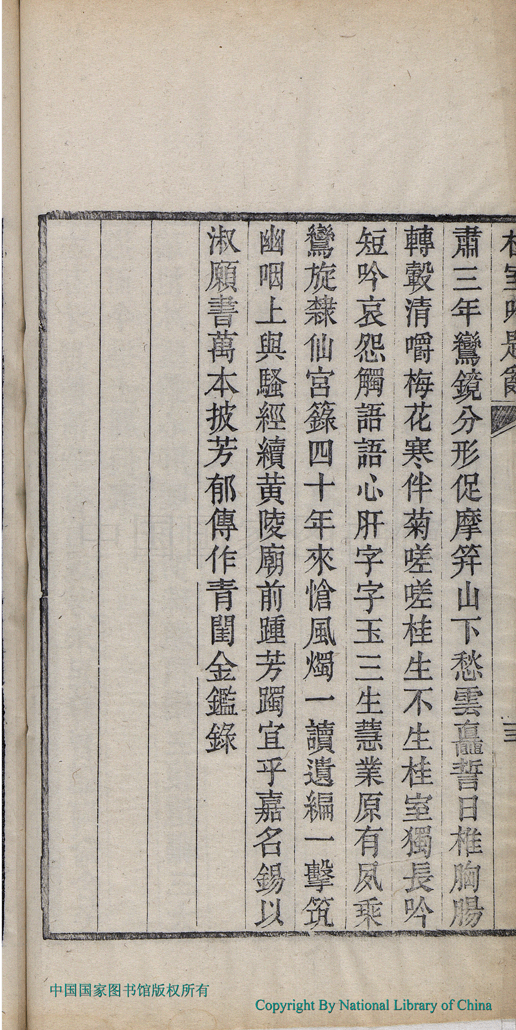 桂室吟題辭
三
肅三年鸞鏡分形促摩笄山下愁雲矗誓日椎胸腸
轉轂清嚼梅花寒伴菊嗟嗟桂生不生桂室獨長吟
短吟哀怨觸語語心肝字字玉三生慧業原有夙乘
鸞旋隸仙宮籙四十年來愴風燭一讀遺編一擊筑
幽咽上與騷經續黃陵廟前踵芳躅宜乎嘉名錫以
淑願書萬本披芳郁傳作青閨金鑑錄
中国国家图书馆版权所有
Copyright By National Library of China